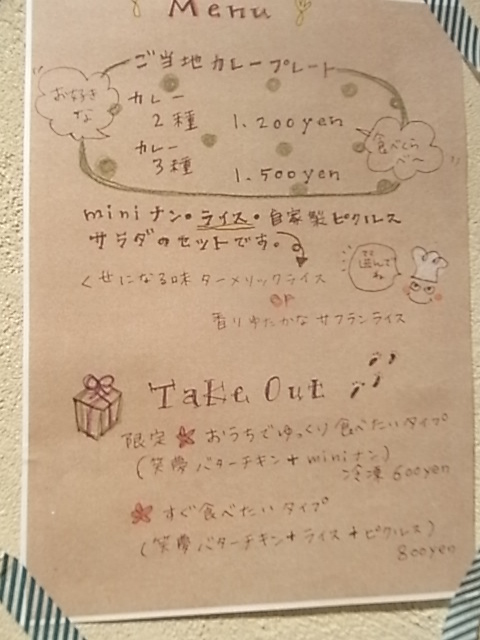 Menu
ご当地カレープレート
お好き
な
カレー
2種 1.200yen
カレー
3種 1.500yen
食べくら
べへ
miniナン・ライス・自家製ピクルス
サラダのセットです。
くせになる味 ターメリックライス
選んで
ね
or
香りゆたかな サフランライス
Take Out
限定 おうちでゆっくり食べたいタイプ
(笑夢バターチキン+miniナン)
冷凍600yen
すぐ食べたいタイプ
(笑夢バターチキン+ライス+ピクルス)
800yen